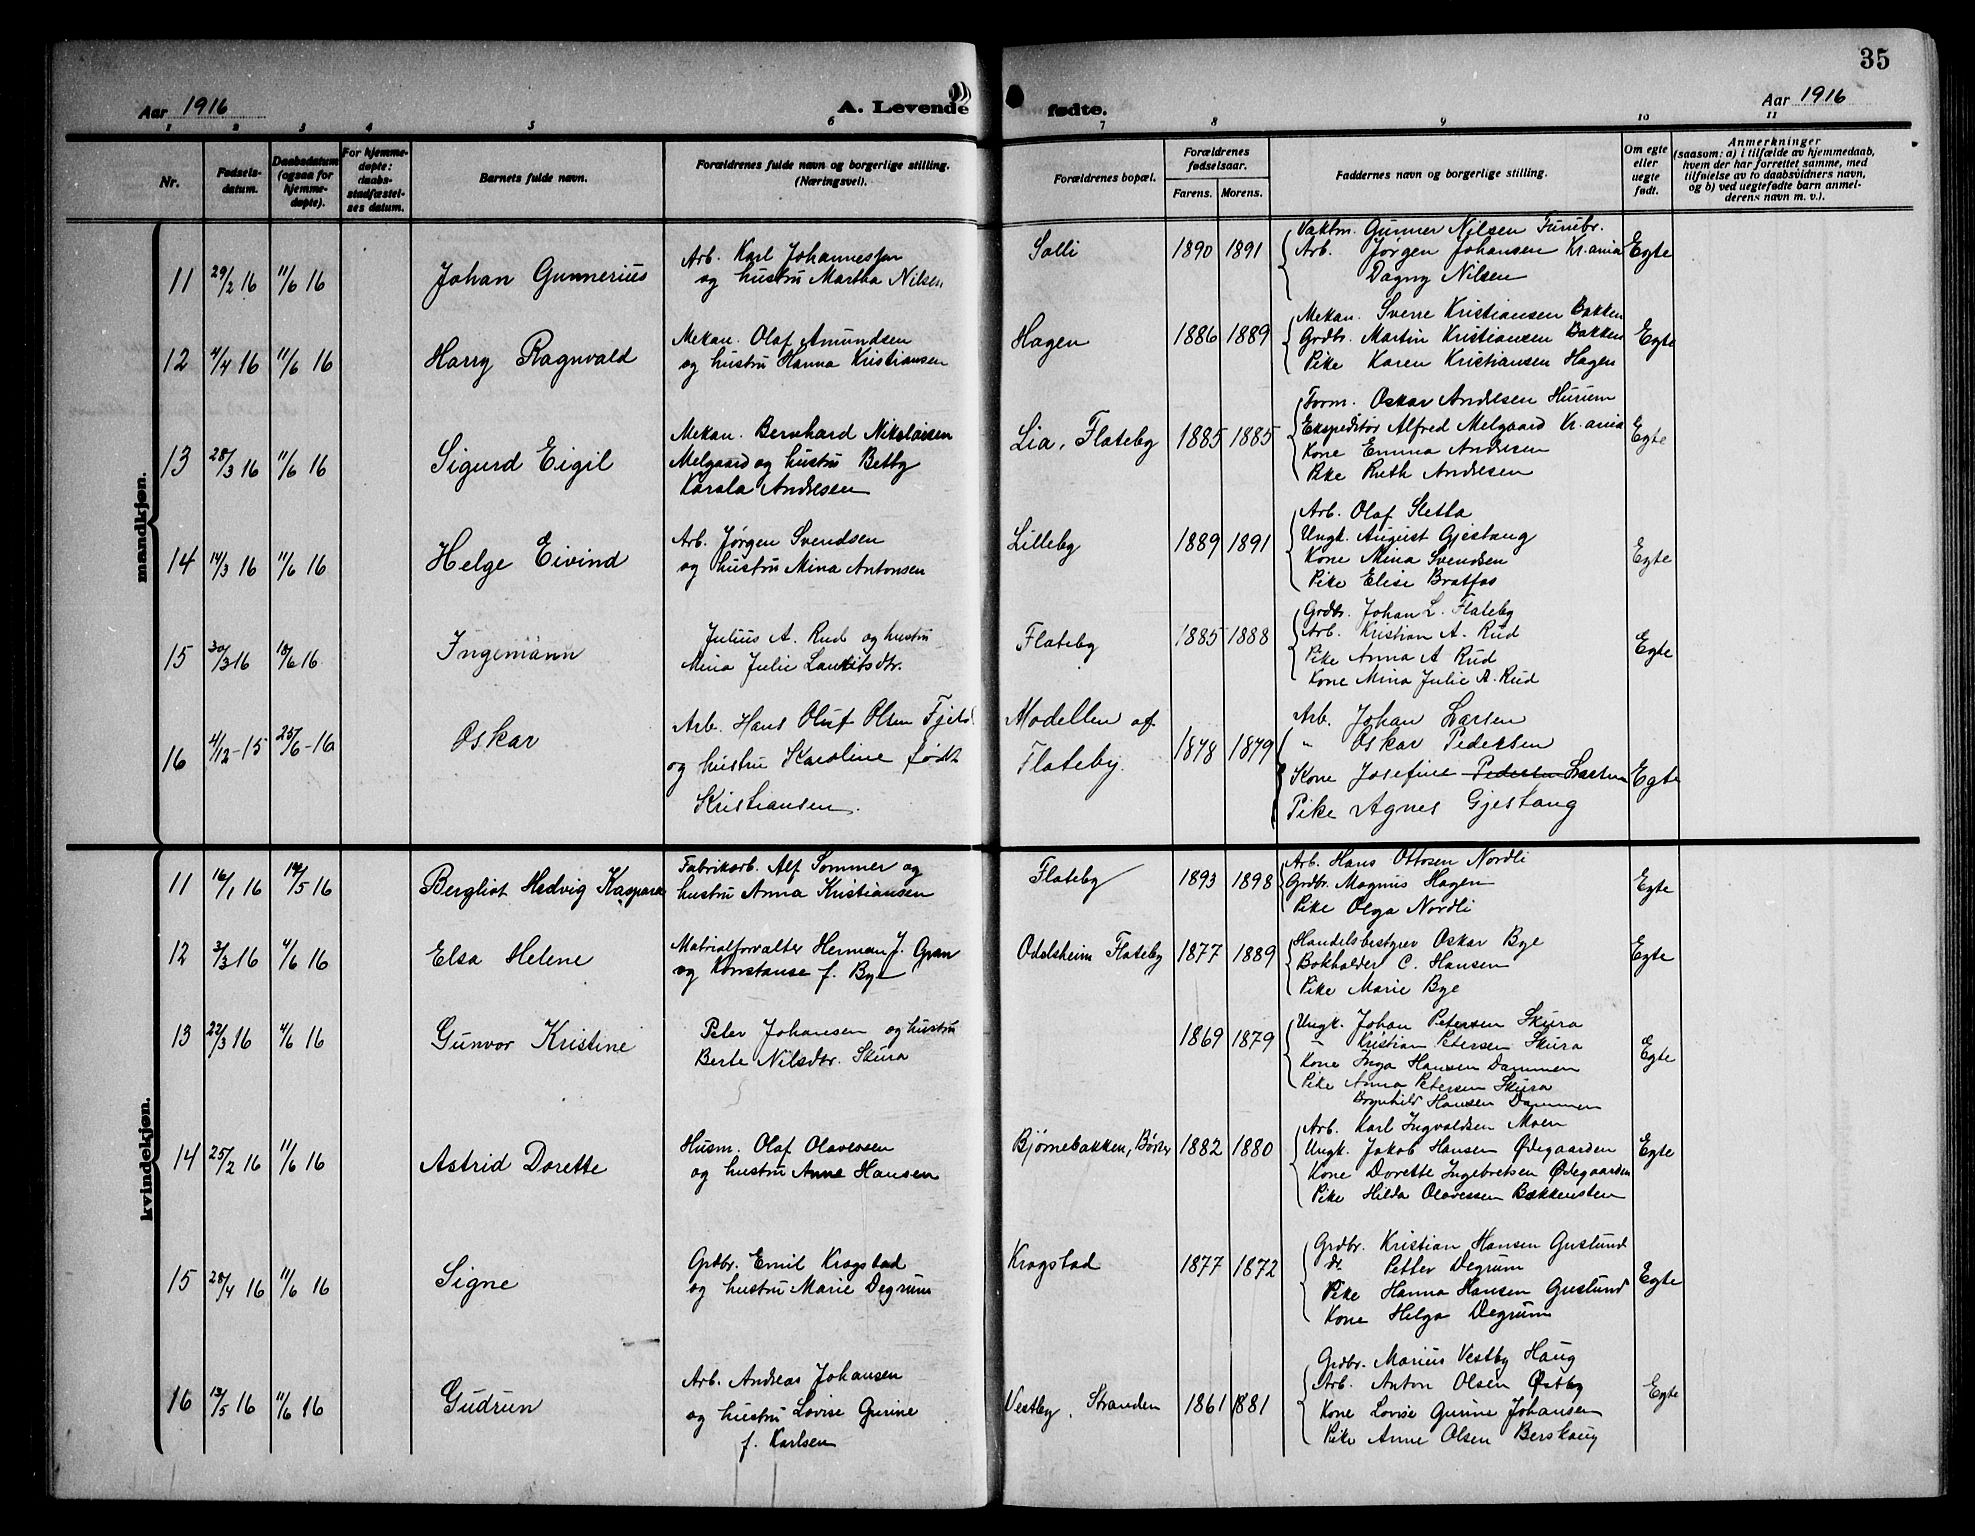 35
Aar 1916
A. Levende fødte.
Aar 1916
1 2 3 4 5 6 7 8 9 10 11
Nr.
Fødsels-
datum.
Daabsdatum
(ogsaa for
hjemme-
døpte).
For hjemme-
døpte:
daabs-
stadfæstel-
ses datum.
Barnets fulde navn.
Forældrenes fulde navn og borgerlige stilling.
(Næringsvei).
Forældrenes bopæl.
Forældrenes
fødselsaar.
Farens. Morens.
Faddernes navn og borgerlige stilling.
Om egte
eller
uegte
født.
Anmerkninger
(saasom: a) i tilfælde av hjemmedaab,
hvem der har forrettet samme, med
tilføielse av to daabsvidners navn,
og b) ved uegtefødte barn anmel-
derens navn m. v.).
mandkjøn.
11 29/2 16 11/6 16 Johan Gunnerius
Arb. Karl Johannessen
og hustru Martha Nilsen
Solli 1890 1891
Vaktm. Gunner Nilsen Furubr.
Arb. Jørgen Johansen Kr.ania
Dagny Nilsen
Egte
12 4/4 16 11/6 16 Harry Ragnvald
Mekan. Olaf Amundsen
og hustru Hanna Kristiansen
Hagen 1886 1889
Mekan. Sverre Kristiansen Bakken
Grdbr. Martin Kristiansen Bakken
Pike Karen Kristiansen Hagen
Egte
13 28/3 16 11/6 16 Sigurd Eigil
Mekan. Bernhard Nikolaisen
Melgaard og hustru Betby
Karala Andresen
Lia, Flateby 1885 1885
Form. Oskar Andresen Hurum
Ekspeditør Alfred Melgaard Kr.ania
Kone Emma Andresen
Pike Ruth Andresen
Egte
14 14/3 16 11/6 16 Helge Eivind
Arb. Jørgen Svendsen
og hustru Mina Antonsen
Lilleby 1889 1891
Arb. Olaf Sletta
Ungk. August Gjestang
Kone Mina Svendsen
Pike Elise Bratfos
Egte
15 30/3 16 18/6 16 Ingemann
Julius A. Rud og hustru
Mina Julie Lauritsdtr.
Flateby 1885 1888
Grdbr. Johan L. Flateby
Arb. Kristian A. Rud
Pike Anna A Rud
Kone Mina Julie A. Rud
Egte
16 4/12-15 25/6-16 Oskar
Arb. Hans Oluf Olsen Fjeld
og hustru Karoline født
Kristiansen.
Modellen af
Flateby.
1878 1879
Arb. Johan Larsen
" Oskar Pedersen
Kone Josefine Pedersen Larsen
Pike Agnes Gjestang
Egte
kvindekjøn.
11 16/1 16 14/5 16 Bergliot Hedvig Kaspara
Fabrikarb. Alf Sommer og
hustru Anna Kristiansen
Flateby 1893 1898
Arb. Hans Ottosen Nordli
Grdbr. Magnus Hagen
Pike Olga Nordli
Egte
12 3/3 16 4/6 16 Elsa Helene
Matrialforvalter Herman J. Gran
og Konstanse f. Bye
Odelsheim Flateby 1877 1889
Handelsbestyrer Oskar Bye
Bokholder C. Hansen
Pike Marie Bye
Egte
13 22/3 16 4/6 16 Gunvor Kristine
Peter Johansen og hustru
Berte Nilsdtr. Skura
1869 1879
Ungk. Johan Petersen Skura
" Kristian Petersen Skura
Kone Inga Hansen Dammen
Pike Anna Petersen Skura
Borghild Hansen Dammen
Egte
14 25/2 16 11/6 16 Astrid Dorette
Husm. Olaf Olavessen
og hustru Anne Hansen
Bjørnebakken, Børter 1882 1880
Arb. Karl Ingvaldsen Moen
Ungk. Jakob Hansen Ødegaarden
Kone Dorette Ingebretsen Ødegaarden
Pike Hilda Olavessen Bækkensten
Egte
15 28/4 16 11/6 16 Signe
Grdbr. Emil Krogstad
og hustru Marie Degrum
Krogstad 1877 1872
Grdbr. Kristian Hansen Guslund
do. Petter Degrum
Pike Hanna Hansen Guslund
Kone Helga Degrum
Egte
16 13/5 16 11/6 16 Gudrun
Arb. Andreas Johansen
og hustru Lovise Gurine
f. Karlsen
Vestby, Stranden 1861 1881
Grdbr. Marius Vestby Haug
Arb. Anton Olsen Østby
Kone Lovise Gurine Johansen
Pike Anne Olsen Berskaug
Egte